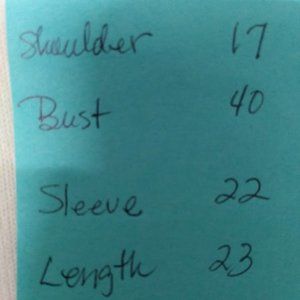 Shoulder 17
Bust 40
Sleeve 22
Length 23